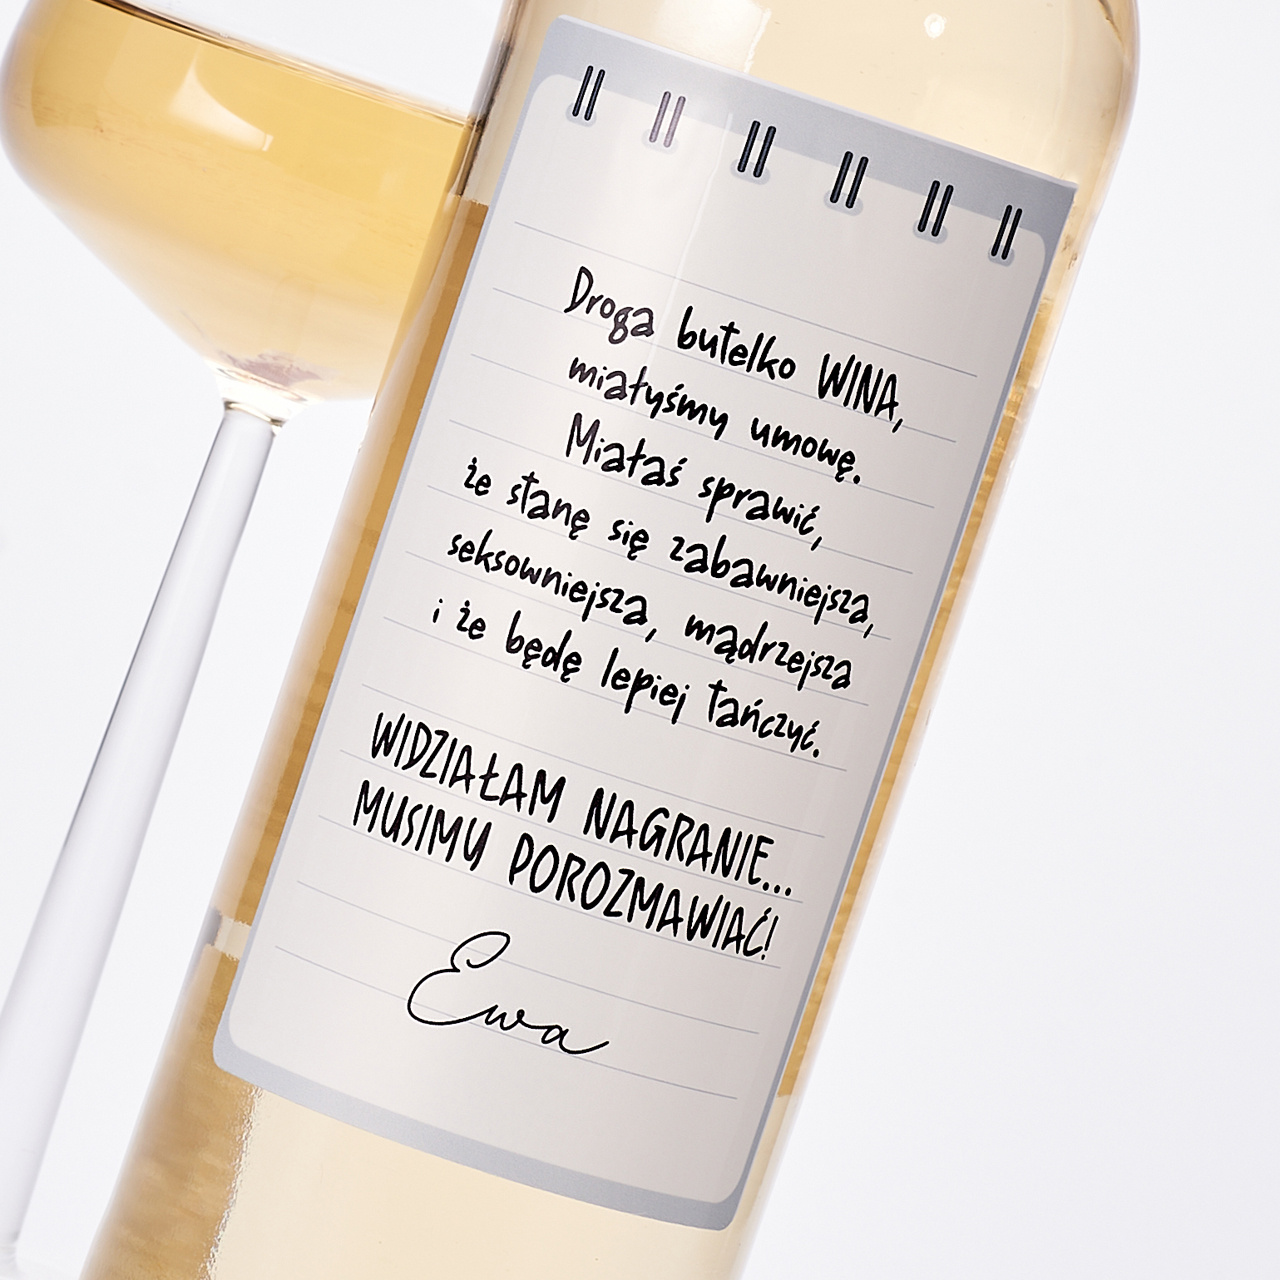 Droga butelko WINA,
miałyśmy umowę.
Miałaś sprawić,
że stanę się zabawniejsza,
seksowniejsza, mądrzejsza
i że będę lepiej tańczyć.
WIDZIAŁAM NAGRANIE...
MUSIMY POROZMAWIAĆ!
Ewa